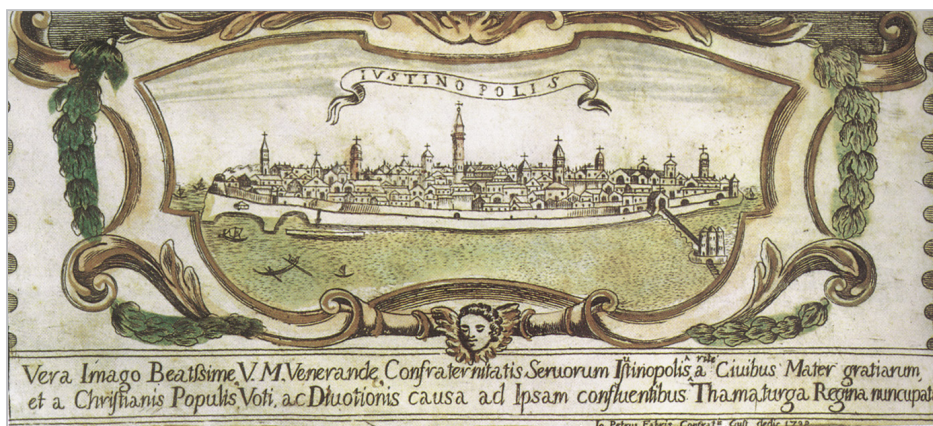 IUSTINOPOLIS
Vera Imago Beatissime V. M. Venerande Confraternitatis Seruorum Iustinopolis a rite Ciuibus Mater gratiarum,
et a Christianis Populis Voti, ac Diuotionis causa ad Ipsam confluentibus Thamaturga Regina nuncupat
Io Petrus Fabris Confrat. dedic 1732